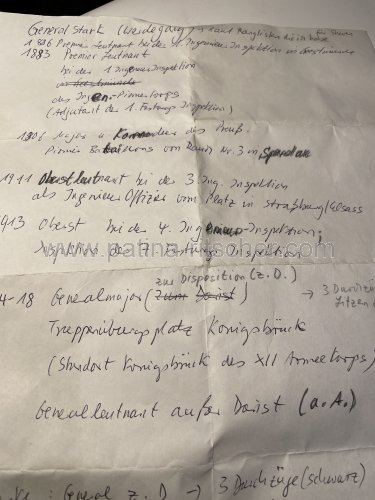 General Stark (Werdegang) laut Ranglisten die ich habe
für Steuern
1886 Premier Leutnant bei der 4. Ingenieur Inspektion in
1893 Premier Leutnant
bei der 1. Ingenieur Inspektion
des Ingen.-Pionierkorps
(Adjutant der 1. Festungs Inspektion)
1906 Major u. Kommandeur des Preuß.
Pionier Bataillons von Rauch Nr. 3 in Spandau
1911 Oberstleutnant bei der 3. Ing. Inspektion
als Ingenieur Offizier vom Platz in Straßburg/Elsass
1913 Oberst bei der 4. Ingenieur-Inspektion;
Inspekteur der 7. Festungs Inspektion
www.patina-fischer.com
zur Disposition (z.D.)
4-18 Generalmajor (zum Dienst) → 3 Durchzüge
Litzen
Truppenübungsplatz Königsbrück
(Standort Königsbrück des XII Armeekorps)
Generalleutnant außer Dienst (a.D.)
: General z.D → 3 Durchzüge (schwarz)